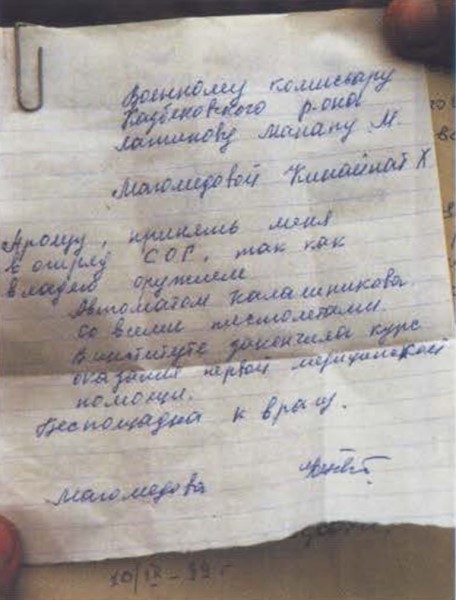 Военному комиссару
Казбековского р-она
Магомедовой Х
Прошу, принять меня
в отряд СОГ, так как
владею оружием
Автоматом Калашникова.
со всеми пистолетами.
В институте закончила курс
оказания первой медицинской
помощи.
Беспощадна к врагу.
Магомедова
10/IX-99 г